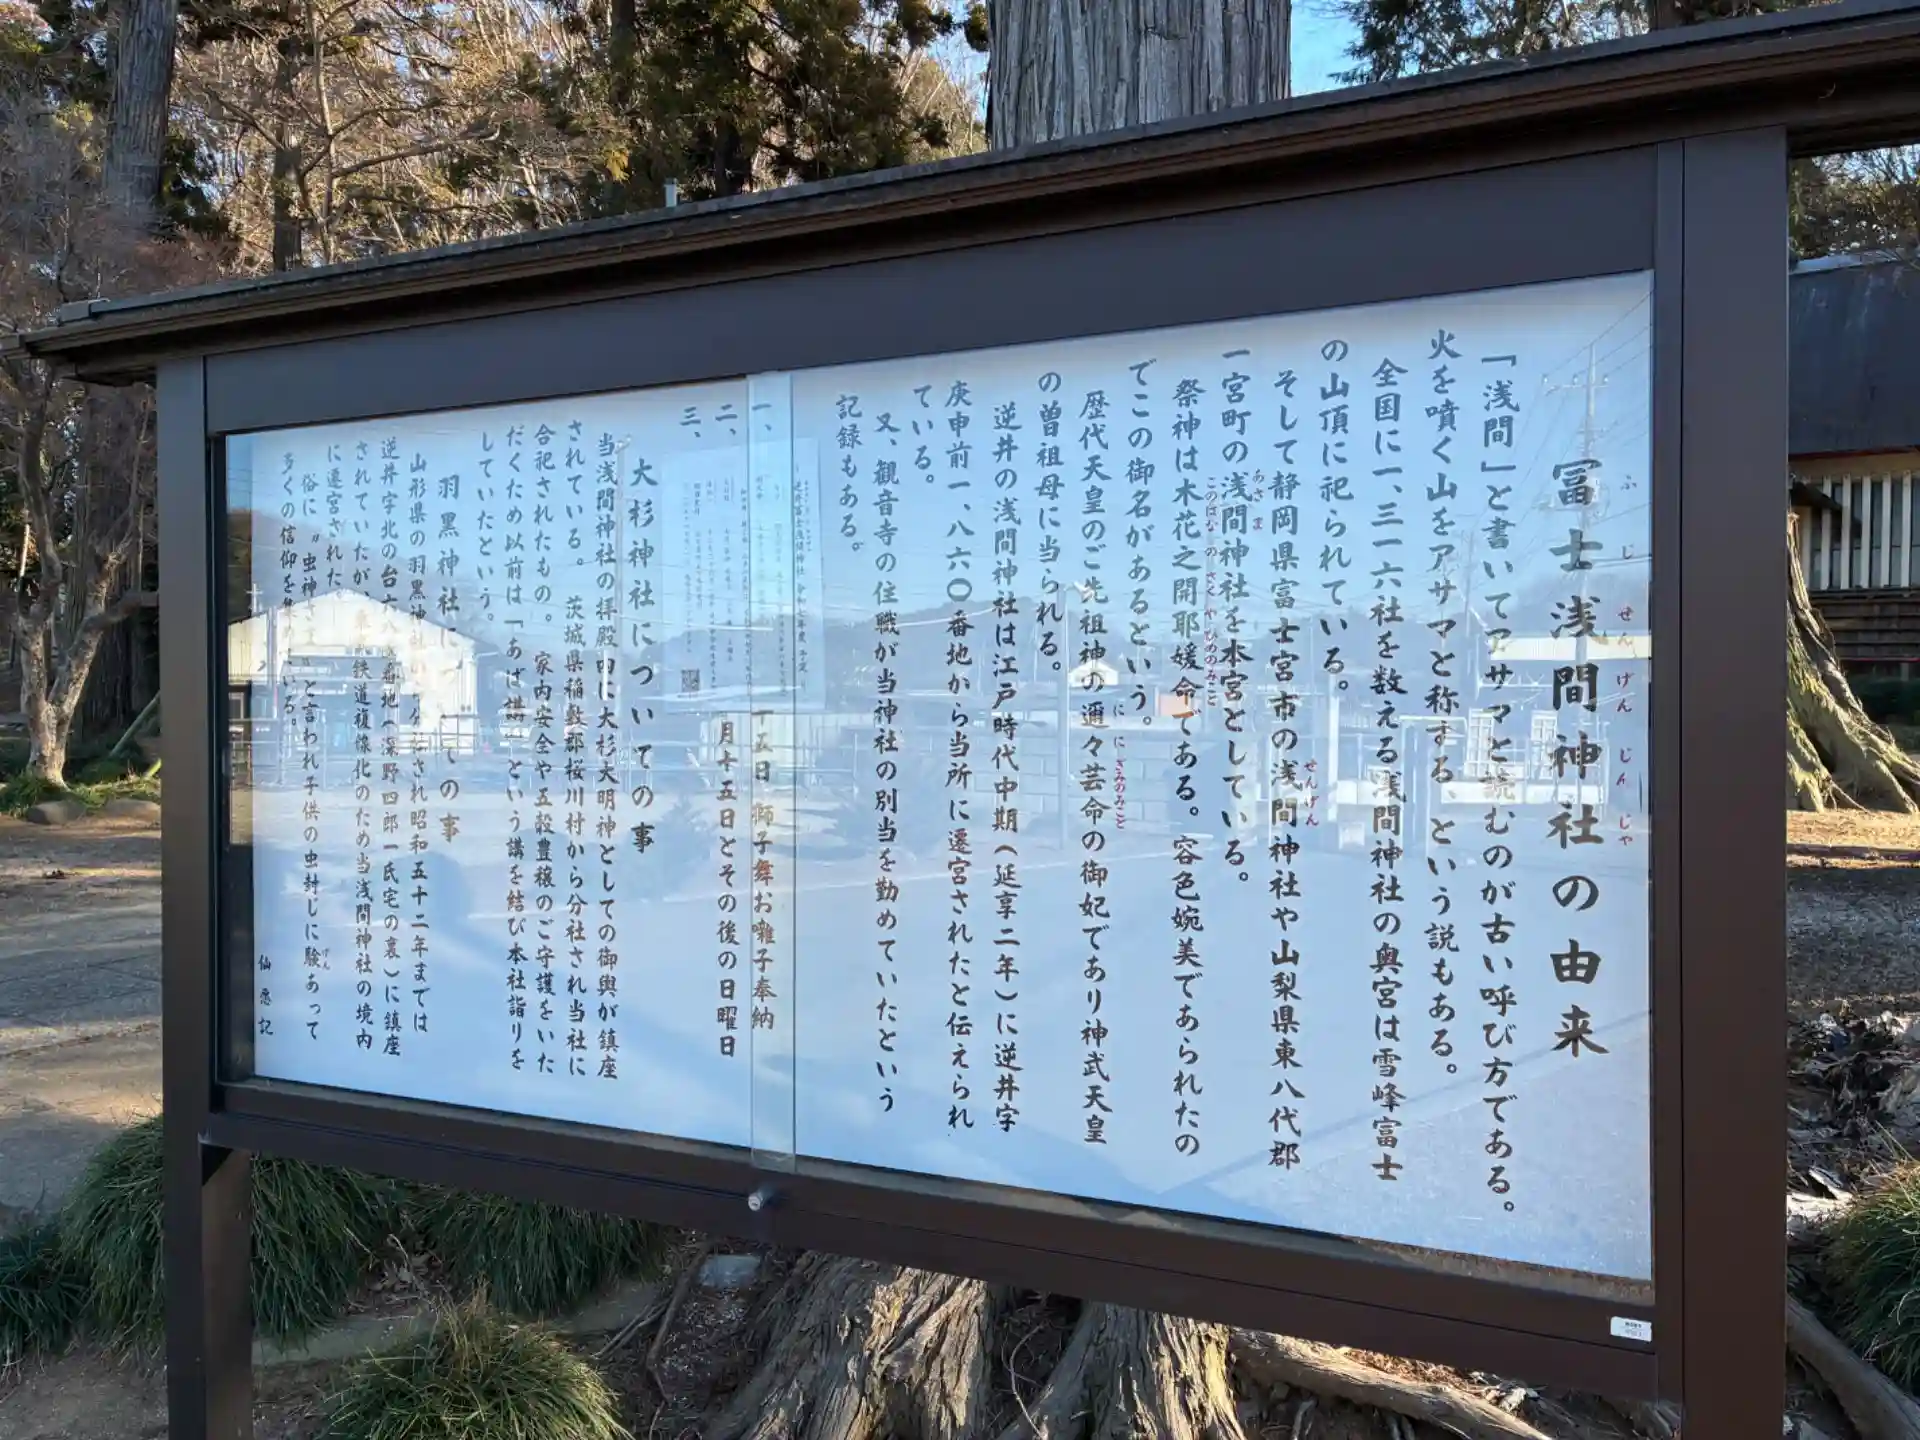 冨士浅間神社の由来
ふじせんげんじんじゃ
「浅間」と書いてアサマと読むのが古い呼び方である。
火を噴く山をアサマと称する、という説もある。
全国に一、三一六社を数える浅間神社の奥宮は雪峰富士
の山頂に祀られている。
そして静岡県富士宮市の浅間神社や山梨県東八代郡
せんげん
一宮町の浅間神社を本宮としている。
あさま
祭神は木花之開耶媛命である。容色婉美であられたの
このはなのさくやひめのみこと
でこの御名があるという。
歴代天皇のご先祖神の邇々芸命の御妃であり神武天皇
ににぎのみこと
の曽祖母に当られる。
逆井の浅間神社は江戸時代中期(延享二年)に逆井字
庚申前一、八六〇番地から当所に遷宮されたと伝えられ
ている。
又、観音寺の住職が当神社の別当を勤めていたという
記録もある。
一、
十五日 獅子舞お囃子奉納
二、
月十五日とその後の日曜日
三、
大杉神社についての事
当浅間神社の拝殿内に大杉大明神としての御輿が鎮座
されている。 茨城県稲敷郡桜川村から分社され当社に
合祀されたもの。 家内安全や五穀豊穣のご守護をいた
だくため以前は「あば講」という講を結び本社詣りを
していたという。
羽黒神社についての事
山形県の羽黒神社の分社され昭和五十二年までは
逆井字北の台 番地(深野四郎一氏宅の裏)に鎮座
されていたが、東武鉄道複線化のため当浅間神社の境内
に遷宮された。
俗に〝虫神さま〟と言われ子供の虫封じに験あって
げん
多くの信仰を集めている。
仙 愿 記